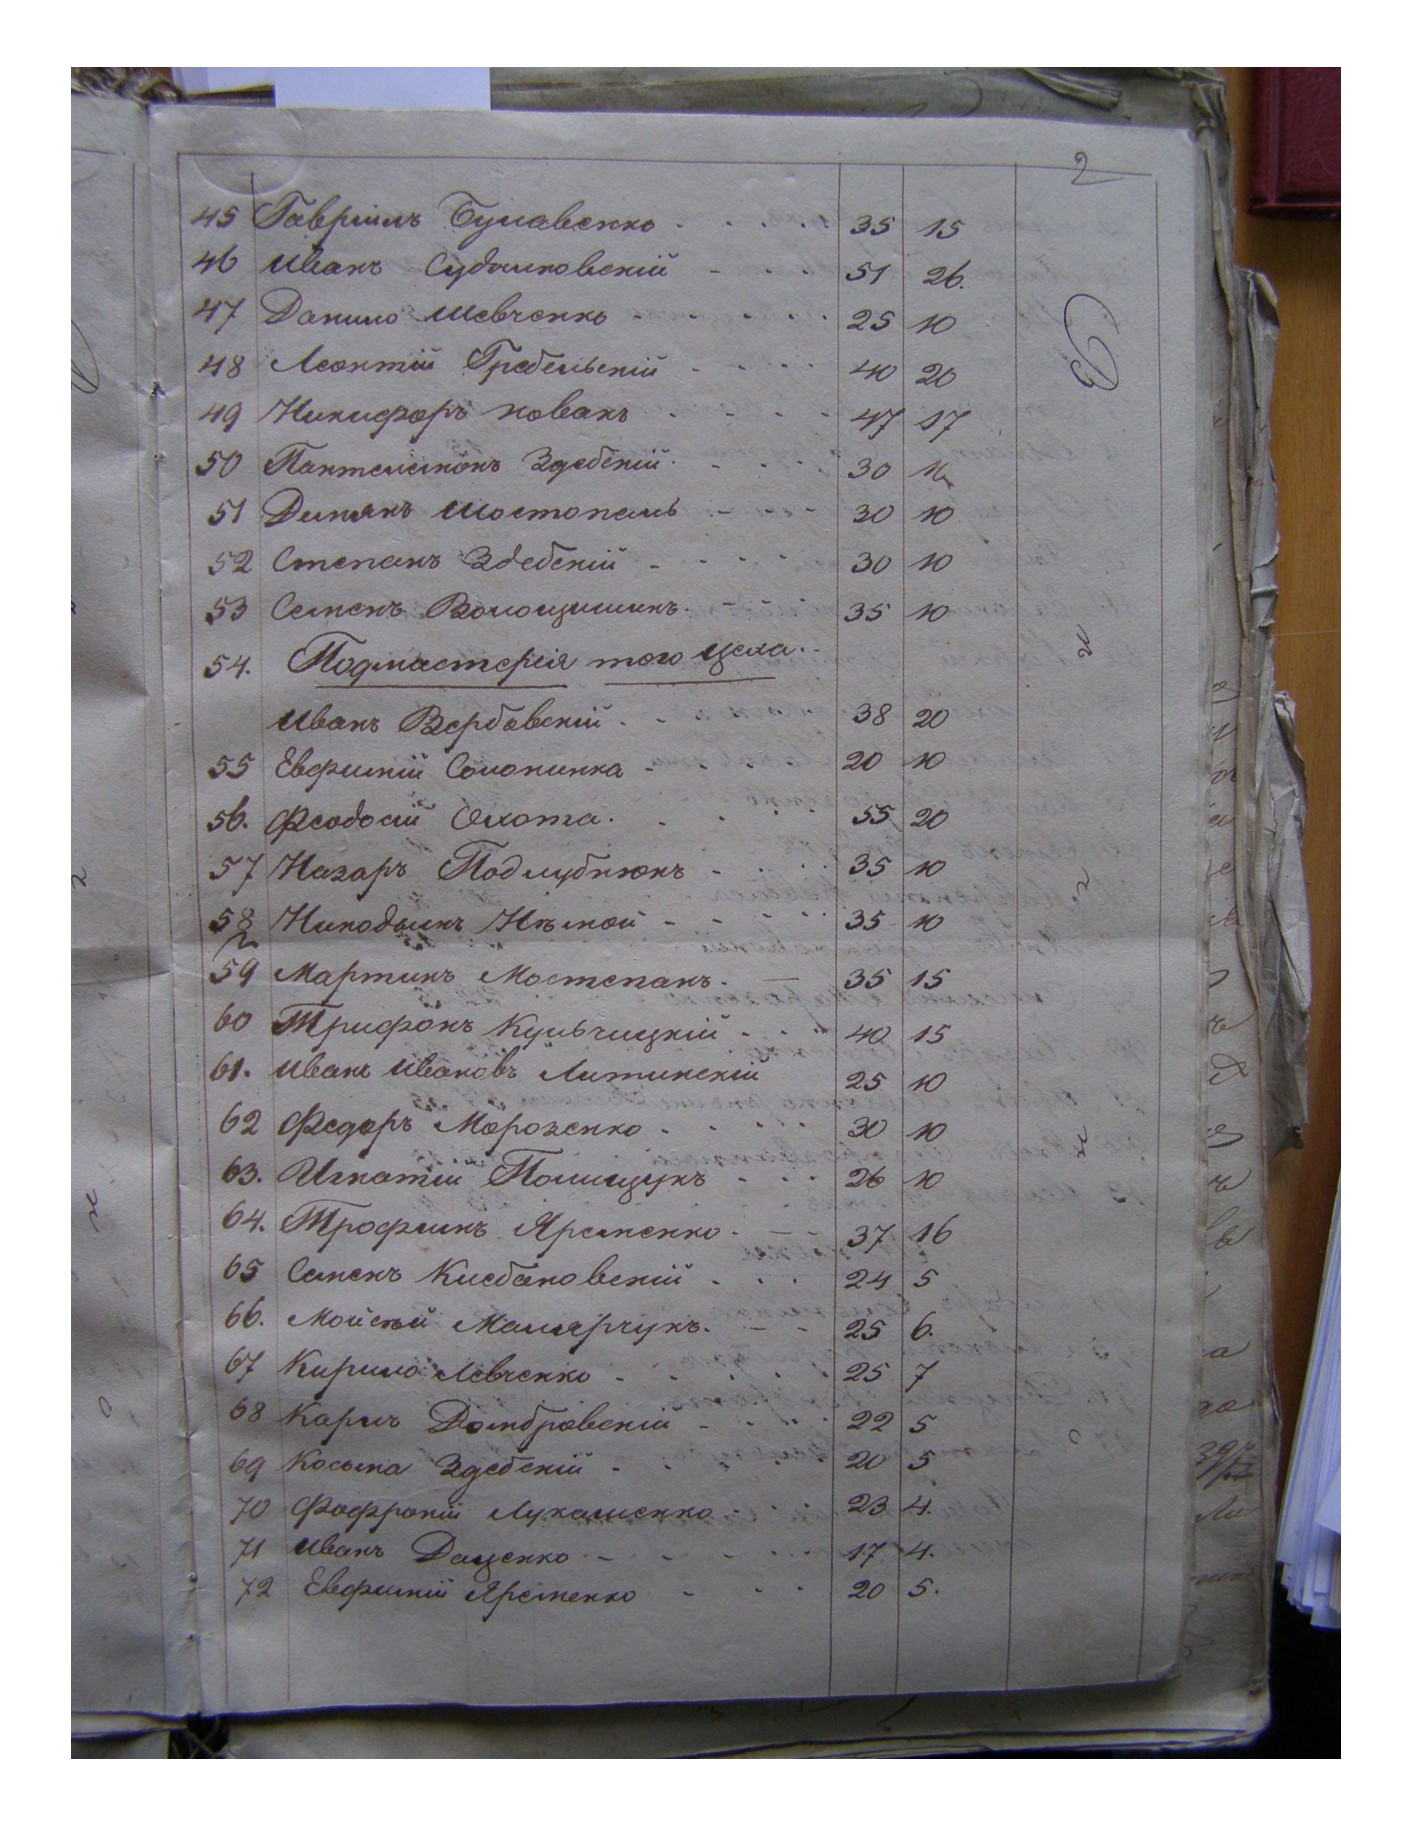 2
45 Гаврiилъ Булавенко 35 15
46 Иванъ Судилковскiй 51 26.
47 Данило Шевченко 25 10
48 Леонтiй Гребельскiй 40 20
49 Никифоръ Новакъ 47 17
50 Пантелимонъ Здебскiй 30 10
51 Димянъ Шостопалъ 30 10
52 Степанъ Здебскiй 30 10
53 Семенъ Волощишинъ. 35 10
54. Подмастерiя того цеха.
Иванъ Вербовскiй 38 20
55 Евфимiй Солонинка 20 10
56. Феодосiй Охота. 55 20
57 Назаръ Подлубнюкъ 35 10
58 Никодимъ Нѣмой 35 10
59 Мартинъ Мостепанъ. 35 15
60 Трифонъ Кульчицкiй 40 15
61. Иванъ Ивановъ Литинскiй 25 10
62 Федоръ Морозенко 30 10
63. Игнатiй Полищукъ 26 10
64. Трофимъ Яременко 37 16
65 Семенъ 24 5
66. Мойсѣй Малярчукъ. 25 6.
67 Кирило Левченко 25 7
68 Карлъ Домбровскiй 22 5
69 Косьма Здебскiй 20 5
70 Лукашенко 23 4.
71 Иванъ Даценко 17 4.
72 Евфимiй Яременко 20 5.